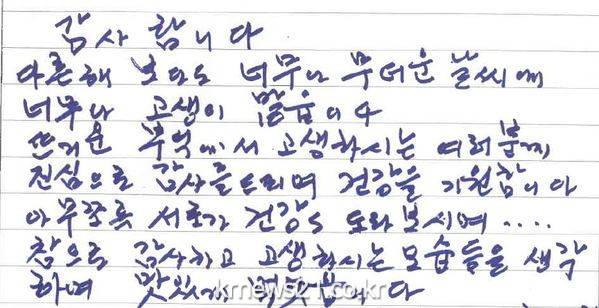 감사합니다
다른해 보다도 너무나 무더운 날씨에
너무나 고생이 많읍니다
뜨거운 부엌에서 고생하시는 여러분께
진심으로 감사를드리며 건강을 기원합니다
아무쪼록 서로가 건강도 도와보시며....
참으로 감사하고 고생하시는 모습들을 생각
하며 맛있게
krnews21.co.kr